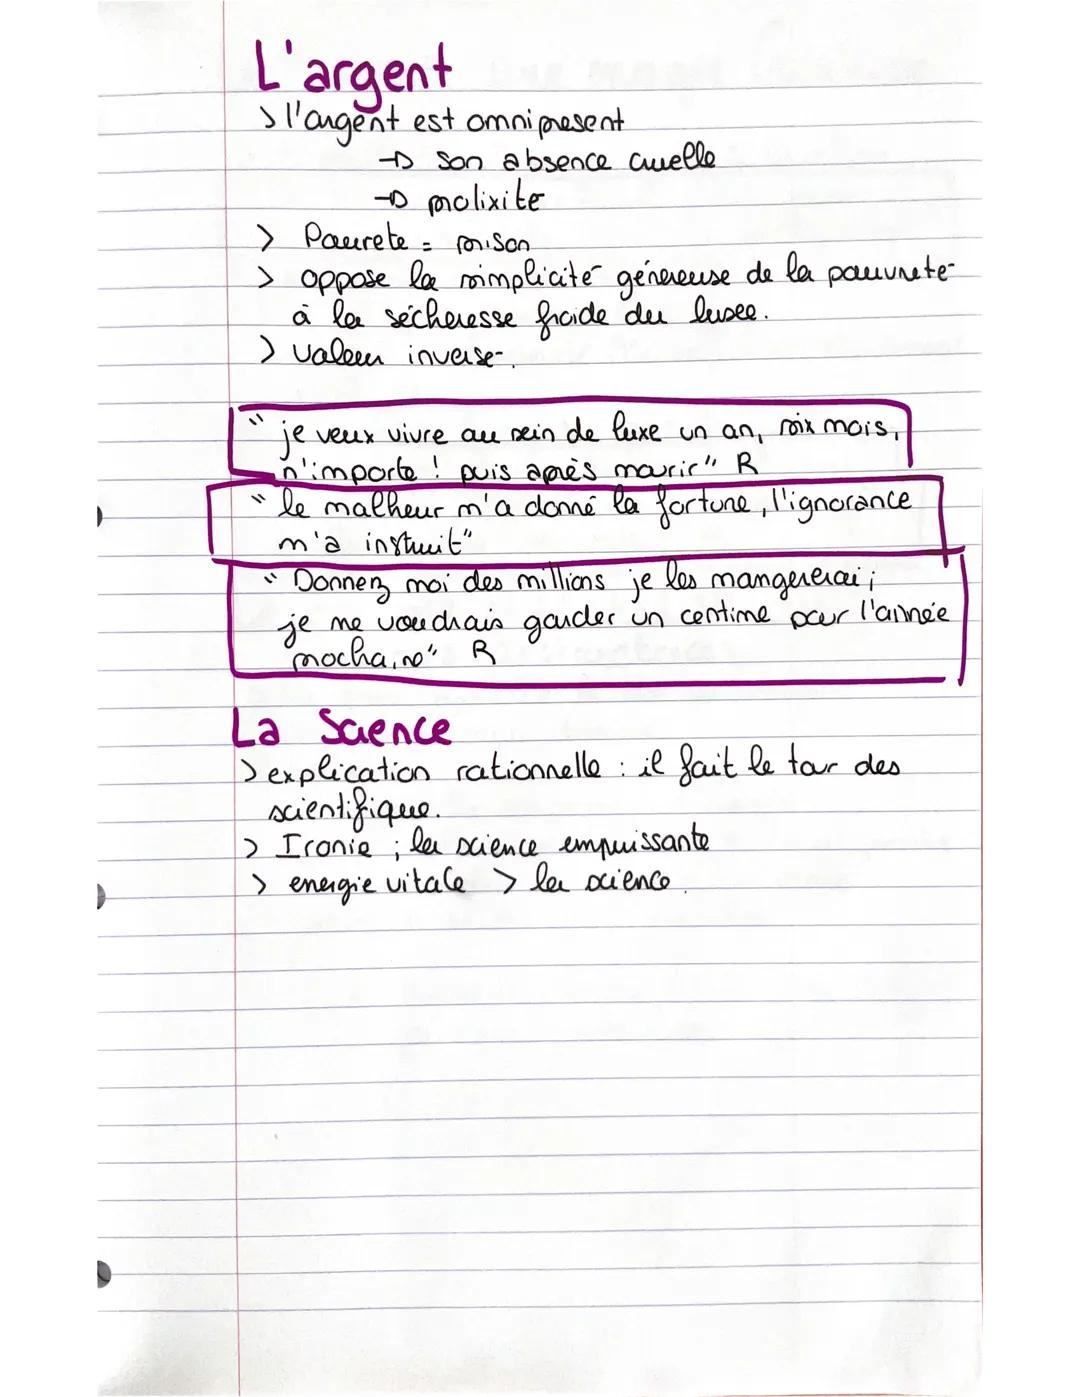 L'argent
> l'argent est omnipresent
→ son absence cruelle
→ prolixite
> Pauvrete = prison
> oppose la simplicité généreuse de la pauvrete
à la sécheresse froide du luxe.
> valeur inverse.
"je veux vivre au sein de luxe un an, six mois,
n'importe ! puis après mourir" R
"le malheur m'a donné la fortune, l'ignorance
m'a instruit"
"Donnez moi des millions je les mangererai ;
je ne voudrais garder un centime pour l'année
prochaine" R
La Science
> explication rationnelle : il fait le tour des
scientifique.
> Ironie ; la science empuissante
> energie vitale > la science.